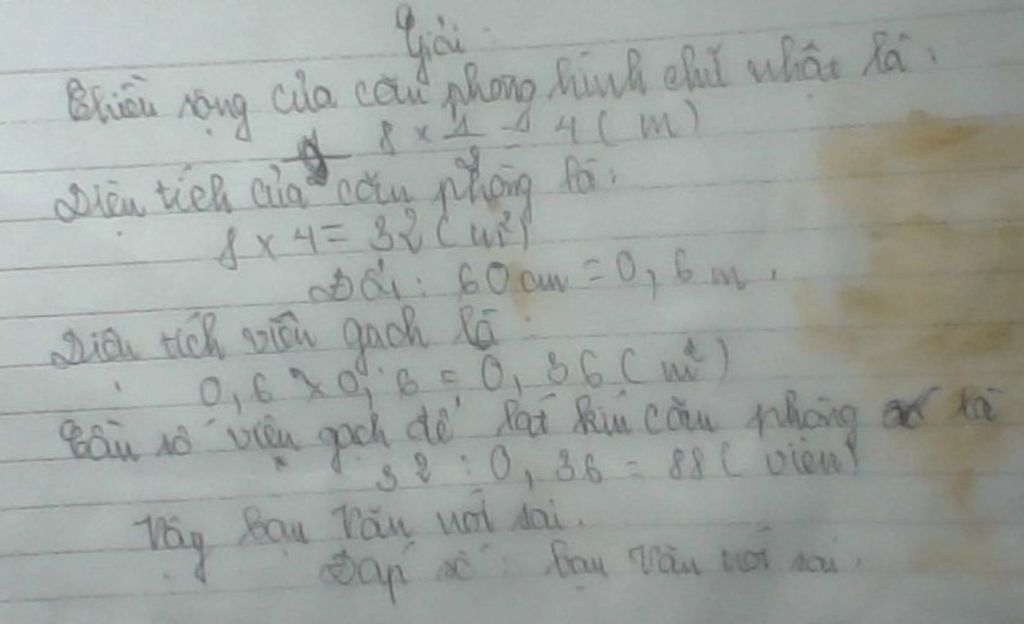 Giải
Chiều rộng của căn phòng hình chữ nhật là:
8 × 1/2 = 4 (m)
Diện tích của căn phòng là:
8 × 4 = 32 (m²)
Đổi: 60 cm = 0,6 m.
Diện tích viên gạch là:
0,6 × 0,6 = 0,36 (m²)
Cần số viên gạch để lát kín căn phòng là
32 : 0,36 = 88 (viên)
Vậy bạn Văn nói sai.
Đáp số: bạn Văn nói sai.